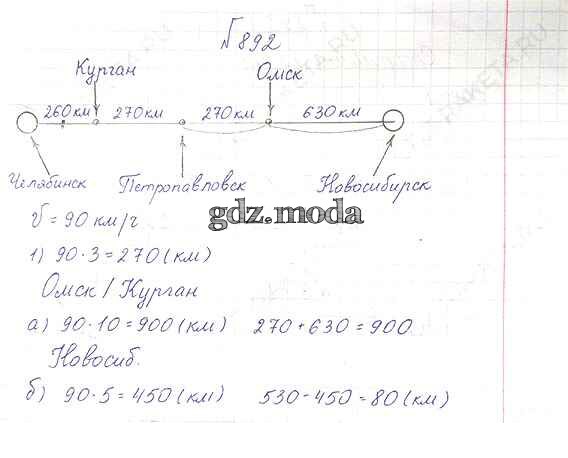 № 892
Курган Омск
260 км 270 км 270 км 630 км
Челябинск Петропавловск Новосибирск
gdz.moda
V = 90 км/ч
1) 90 · 3 = 270 (км)
Омск / Курган
а) 90 · 10 = 900 (км) 270 + 630 = 900
Новосиб.
б) 90 · 5 = 450 (км) 530 - 450 = 80 (км)